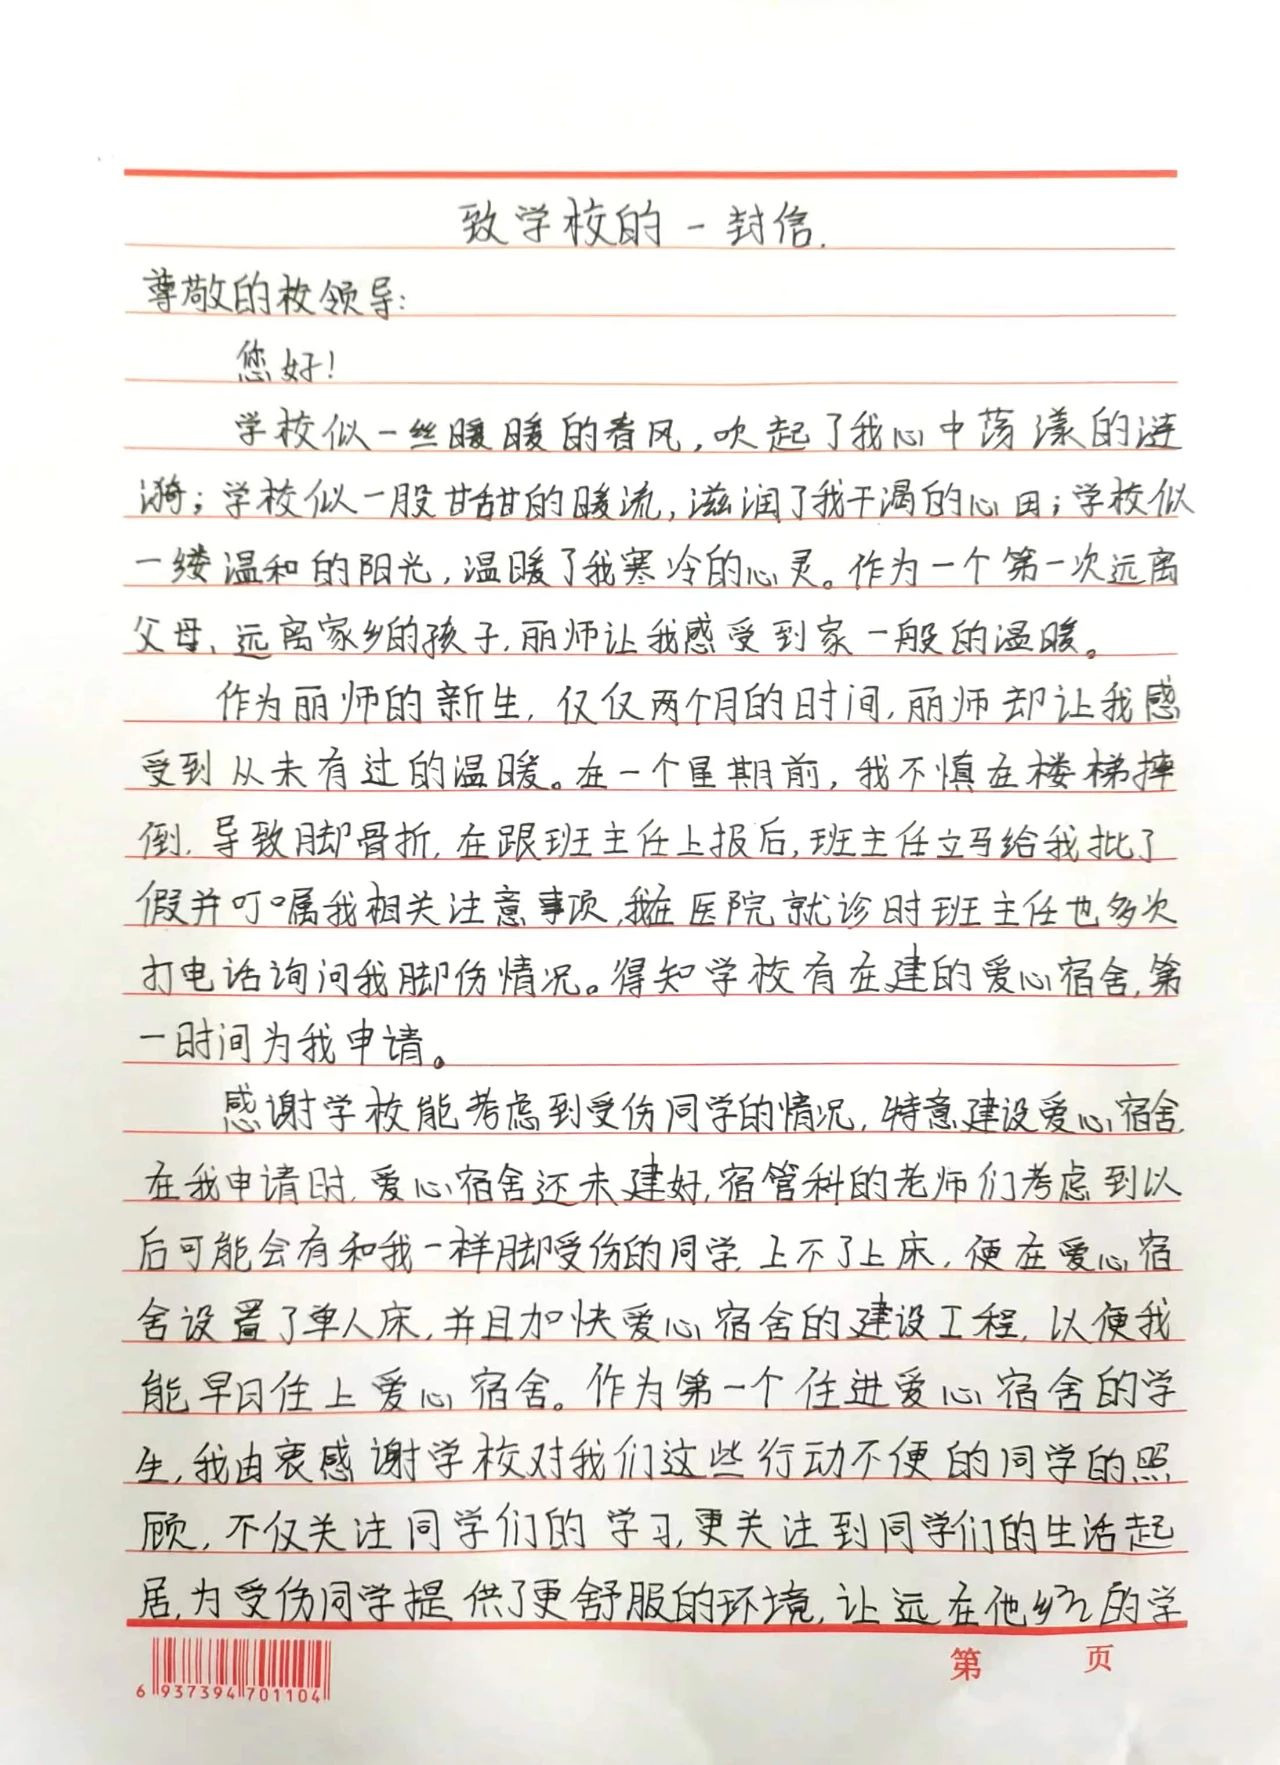 致学校的一封信.
尊敬的校领导:
您好!
学校似一丝暖暖的春风,吹起了我心中荡漾的涟
漪;学校似一股甘甜的暖流,滋润了我干渴的心田;学校似
一缕温和的阳光,温暖了我寒冷的心灵。作为一个第一次远离
父母、远离家乡的孩子,丽师让我感受到家一般的温暖。
作为丽师的新生,仅仅两个月的时间,丽师却让我感
受到从未有过的温暖。在一个星期前,我不慎在楼梯摔
倒,导致脚骨折,在跟班主任上报后,班主任立马给我批了
假并叮嘱我相关注意事项,我在医院就诊时班主任也多次
打电话询问我脚伤情况。得知学校有在建的爱心宿舍,第
一时间为我申请。
感谢学校能考虑到受伤同学的情况,特意建设爱心宿舍,
在我申请时,爱心宿舍还未建好,宿管科的老师们考虑到以
后可能会有和我一样脚受伤的同学,上不了上床,便在爱心宿
舍设置了单人床,并且加快爱心宿舍的建设工程,以便我
能早日住上爱心宿舍。作为第一个住进爱心宿舍的学
生,我由衷感谢学校对我们这些行动不便的同学的照
顾,不仅关注同学们的学习,更关注到同学们的生活起
居,为受伤同学提供了更舒服的环境,让远在他乡的学
第 页
6 937394 701104